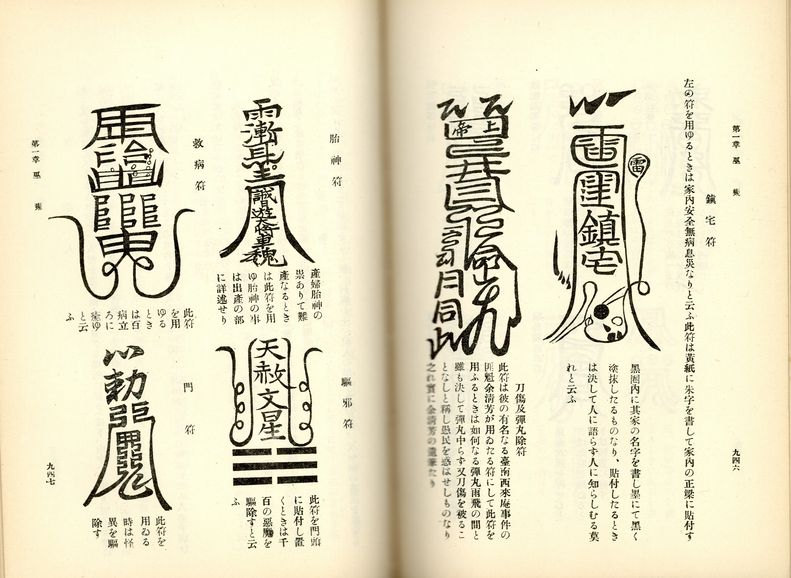 第一章 巫 蠱
九四六
鎭宅符
左の符を用ゆるときは家內安全無病息災なりと云ふ此符は黃紙に朱字を書して家內の正梁に貼付す
雷
鎭宅
黑圏內に其家の名字を書し墨にて黑く
塗抹したるものなり、貼付したるとき
は決して人に語らず人に知らしむる莫
れと云ふ
上帝
月同
刀傷及彈丸除符
此符は彼の有名なる臺南西來庵事件の
匪魁余淸芳が用ゐたる符にして此符を
用ふるときは如何なる彈丸雨飛の間と
雖も決して彈丸中らず又刀傷を被るこ
となしと稱し愚民を惑はせしものなり
之れ實に余淸芳の遺筆たり
胎神符
產婦胎神の
祟ありて難
產なるとき
は此符を用
ゆ胎神の事
は出產の部
に詳述せり
驅邪符
天赦文星
此符を門頭
に貼付し置
くときは千
百の惡魔を
驅除すと云
ふ
救病符
此符
を用
ゆる
とき
は百
病立
ろに
痊ゆ
と云
ふ
門符
勅
此符を
用ゐる
時は怪
異を驅
除す
第一章 巫 蠱
九四七